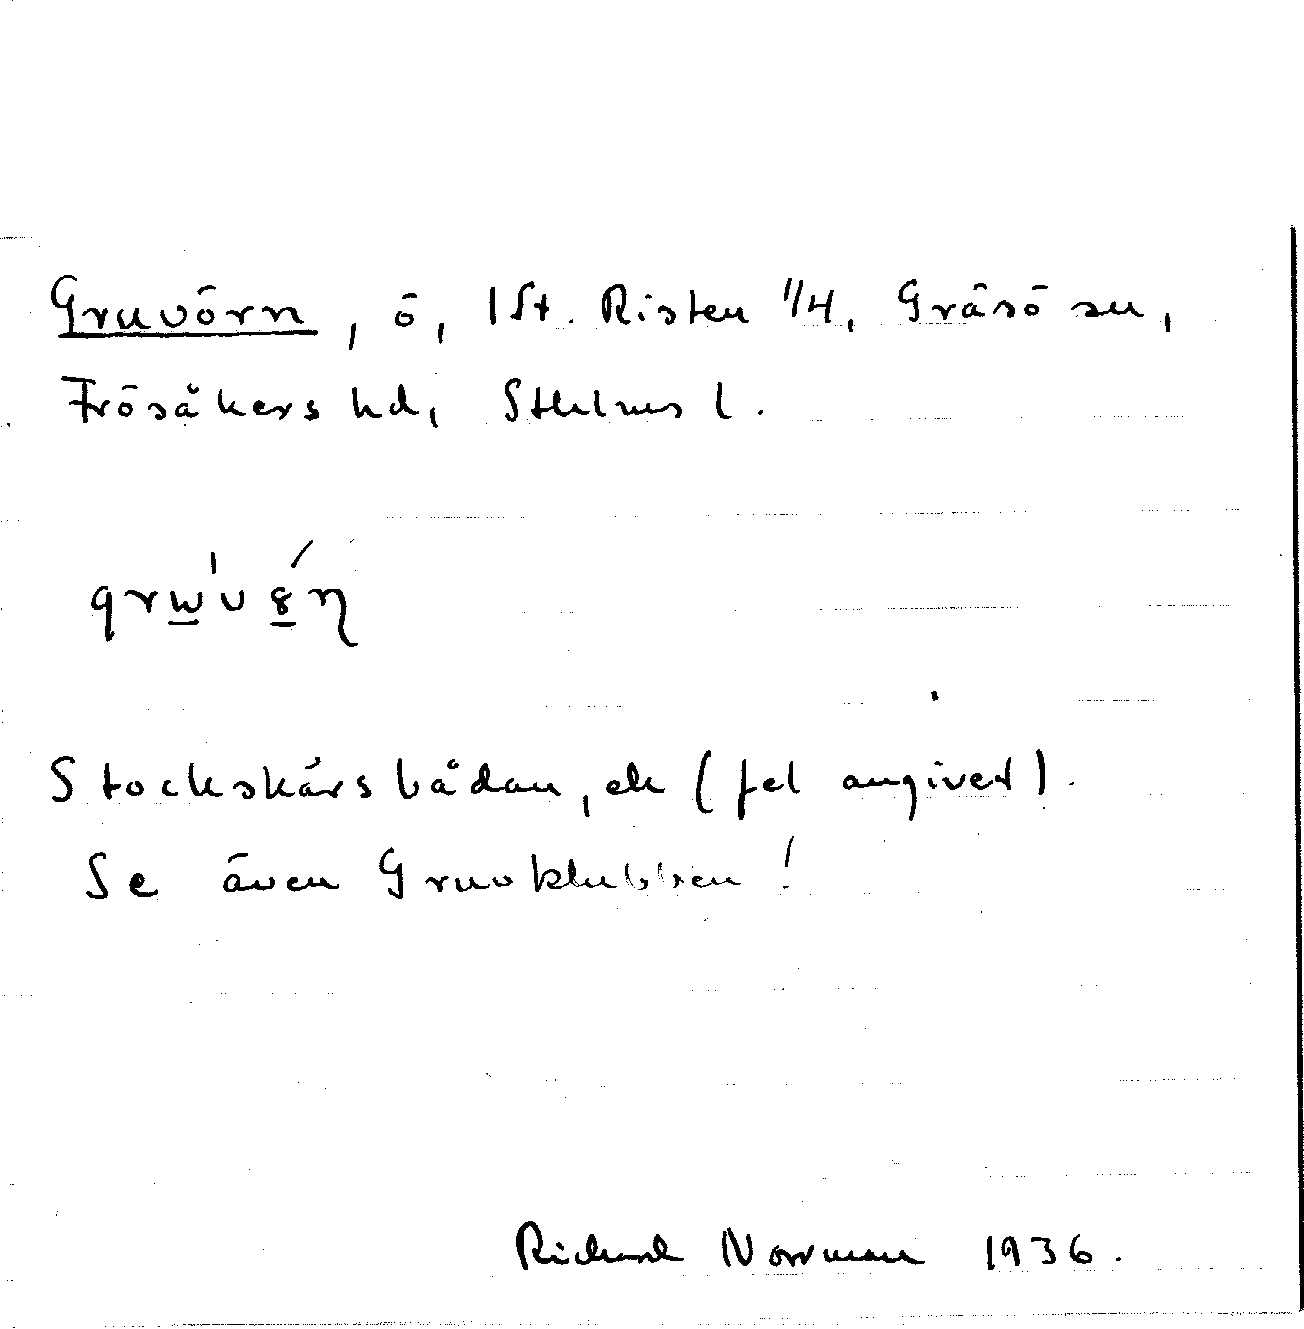 Gruvörn, ö, 1 St. Risten 1/4, Gräsö sn,
Frösåkers hd, Sthlms l.
Stockskärsbådan, ek (fel angivet).
Se även Gruvklubben!
Richard Norrman 1936.